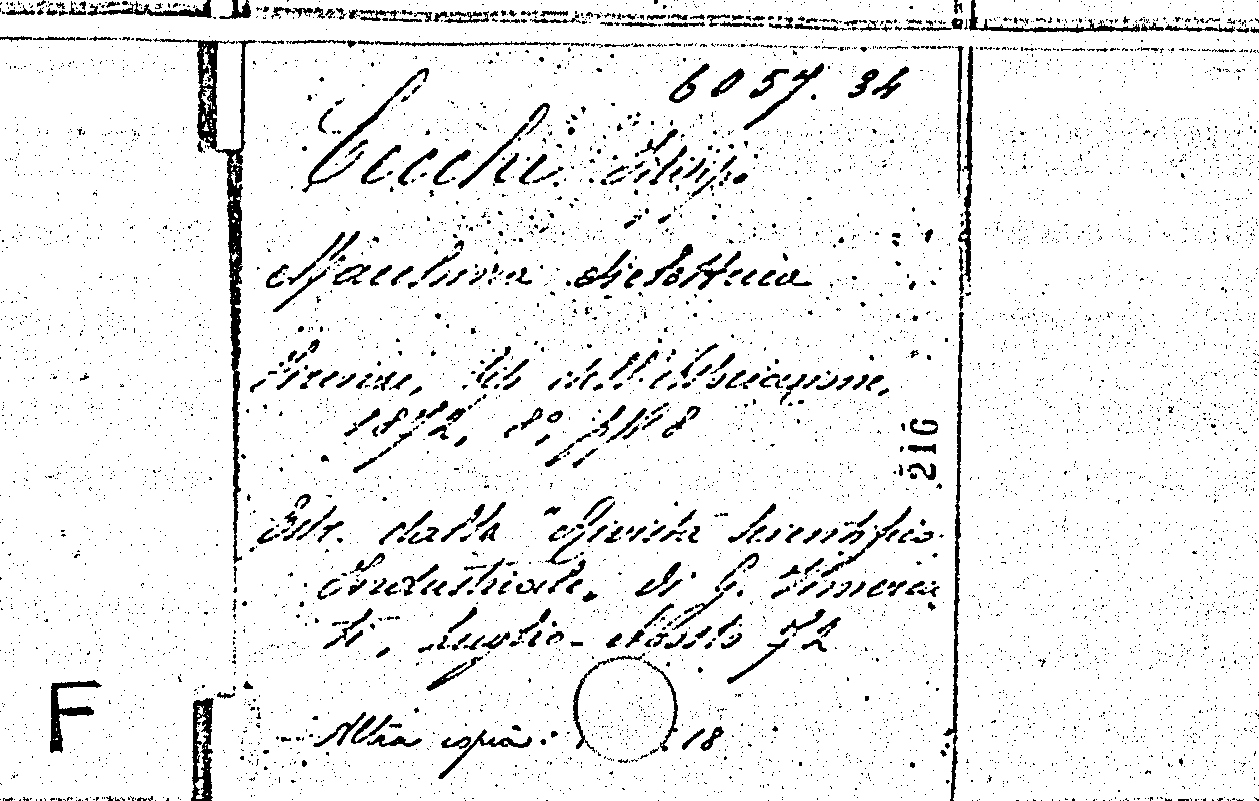 6057. 34
Cecchi Filipp.
Macchina dielettrica
Firenze, tip dell'Associazione,
1872, 8°, pp 8
216
Estr. dalla "Rivista Scientifico
Industriale, di G. Vimerca
ti, Luglio-Agosto 72
Altra copia: 18
F